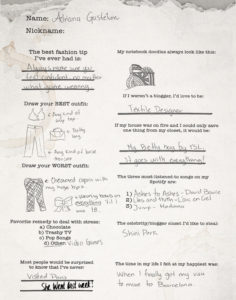 Name: Adriana Gastelum
Nickname:
The best fashion tip
I've ever had is:
Always make sure you
feel confident no matter
what you're wearing
My notebook doodles always look like this:
Draw your BEST outfit:
Any kind of
top
Belly bag
Any kind of
If I weren't a blogger, I'd love to be:
Textile Designer
If my house was on fire and I could only save
one thing from my closet, it would be:
My Belly bag by
it goes with everything!
Draw your WORST outfit:
Oversized
with
huge
Wearing
on
everything till I
was 18.
The three most-listened to songs on my
Spotify are:
1) Ashes to Ashes - David Bowie
2)
3) Jump - Madonna
Favorite remedy to deal with stress:
a) Chocolate
b) Trashy TV
c) Pop Songs
d) Other: Video Games
The celebrity/blogger closet I'd like to steal:
Shini Park
Most people would be surprised
to know that I've never:
Visited Paris
She Went last week!
The time in my life I felt as my happiest was:
When I finally got my visa
to move to Barcelona.